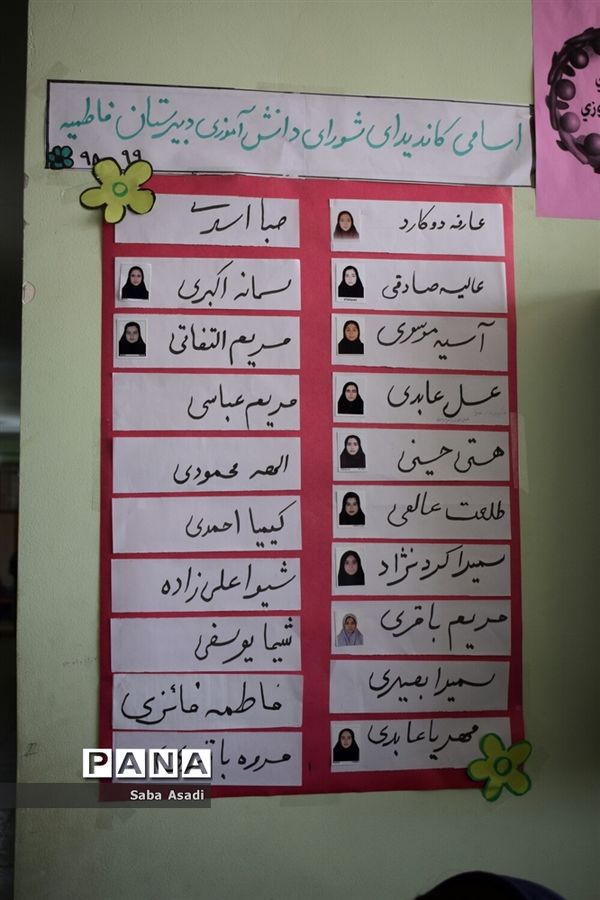 اسامی کاندیدای شورای دانش آموزی دبیرستان فاطمیه
۹۸ ۹۹
عارفه دوکارد
عالیه صادقی
آسیه موسوی
عسل عابدی
هستی حسینی
طلعت عالفی
سمیرا کردنژاد
مریم باقری
سمیرا بصیری
مهریا عابدی
صبا اسدی
سمانه اکبری
مریم التفاتی
مریم عباسی
الهه محمودی
کیمیا احمدی
شیوا علی زاده
شیما یوسفی
فاطمه فائزی
مروه
PANA
Saba Asadi